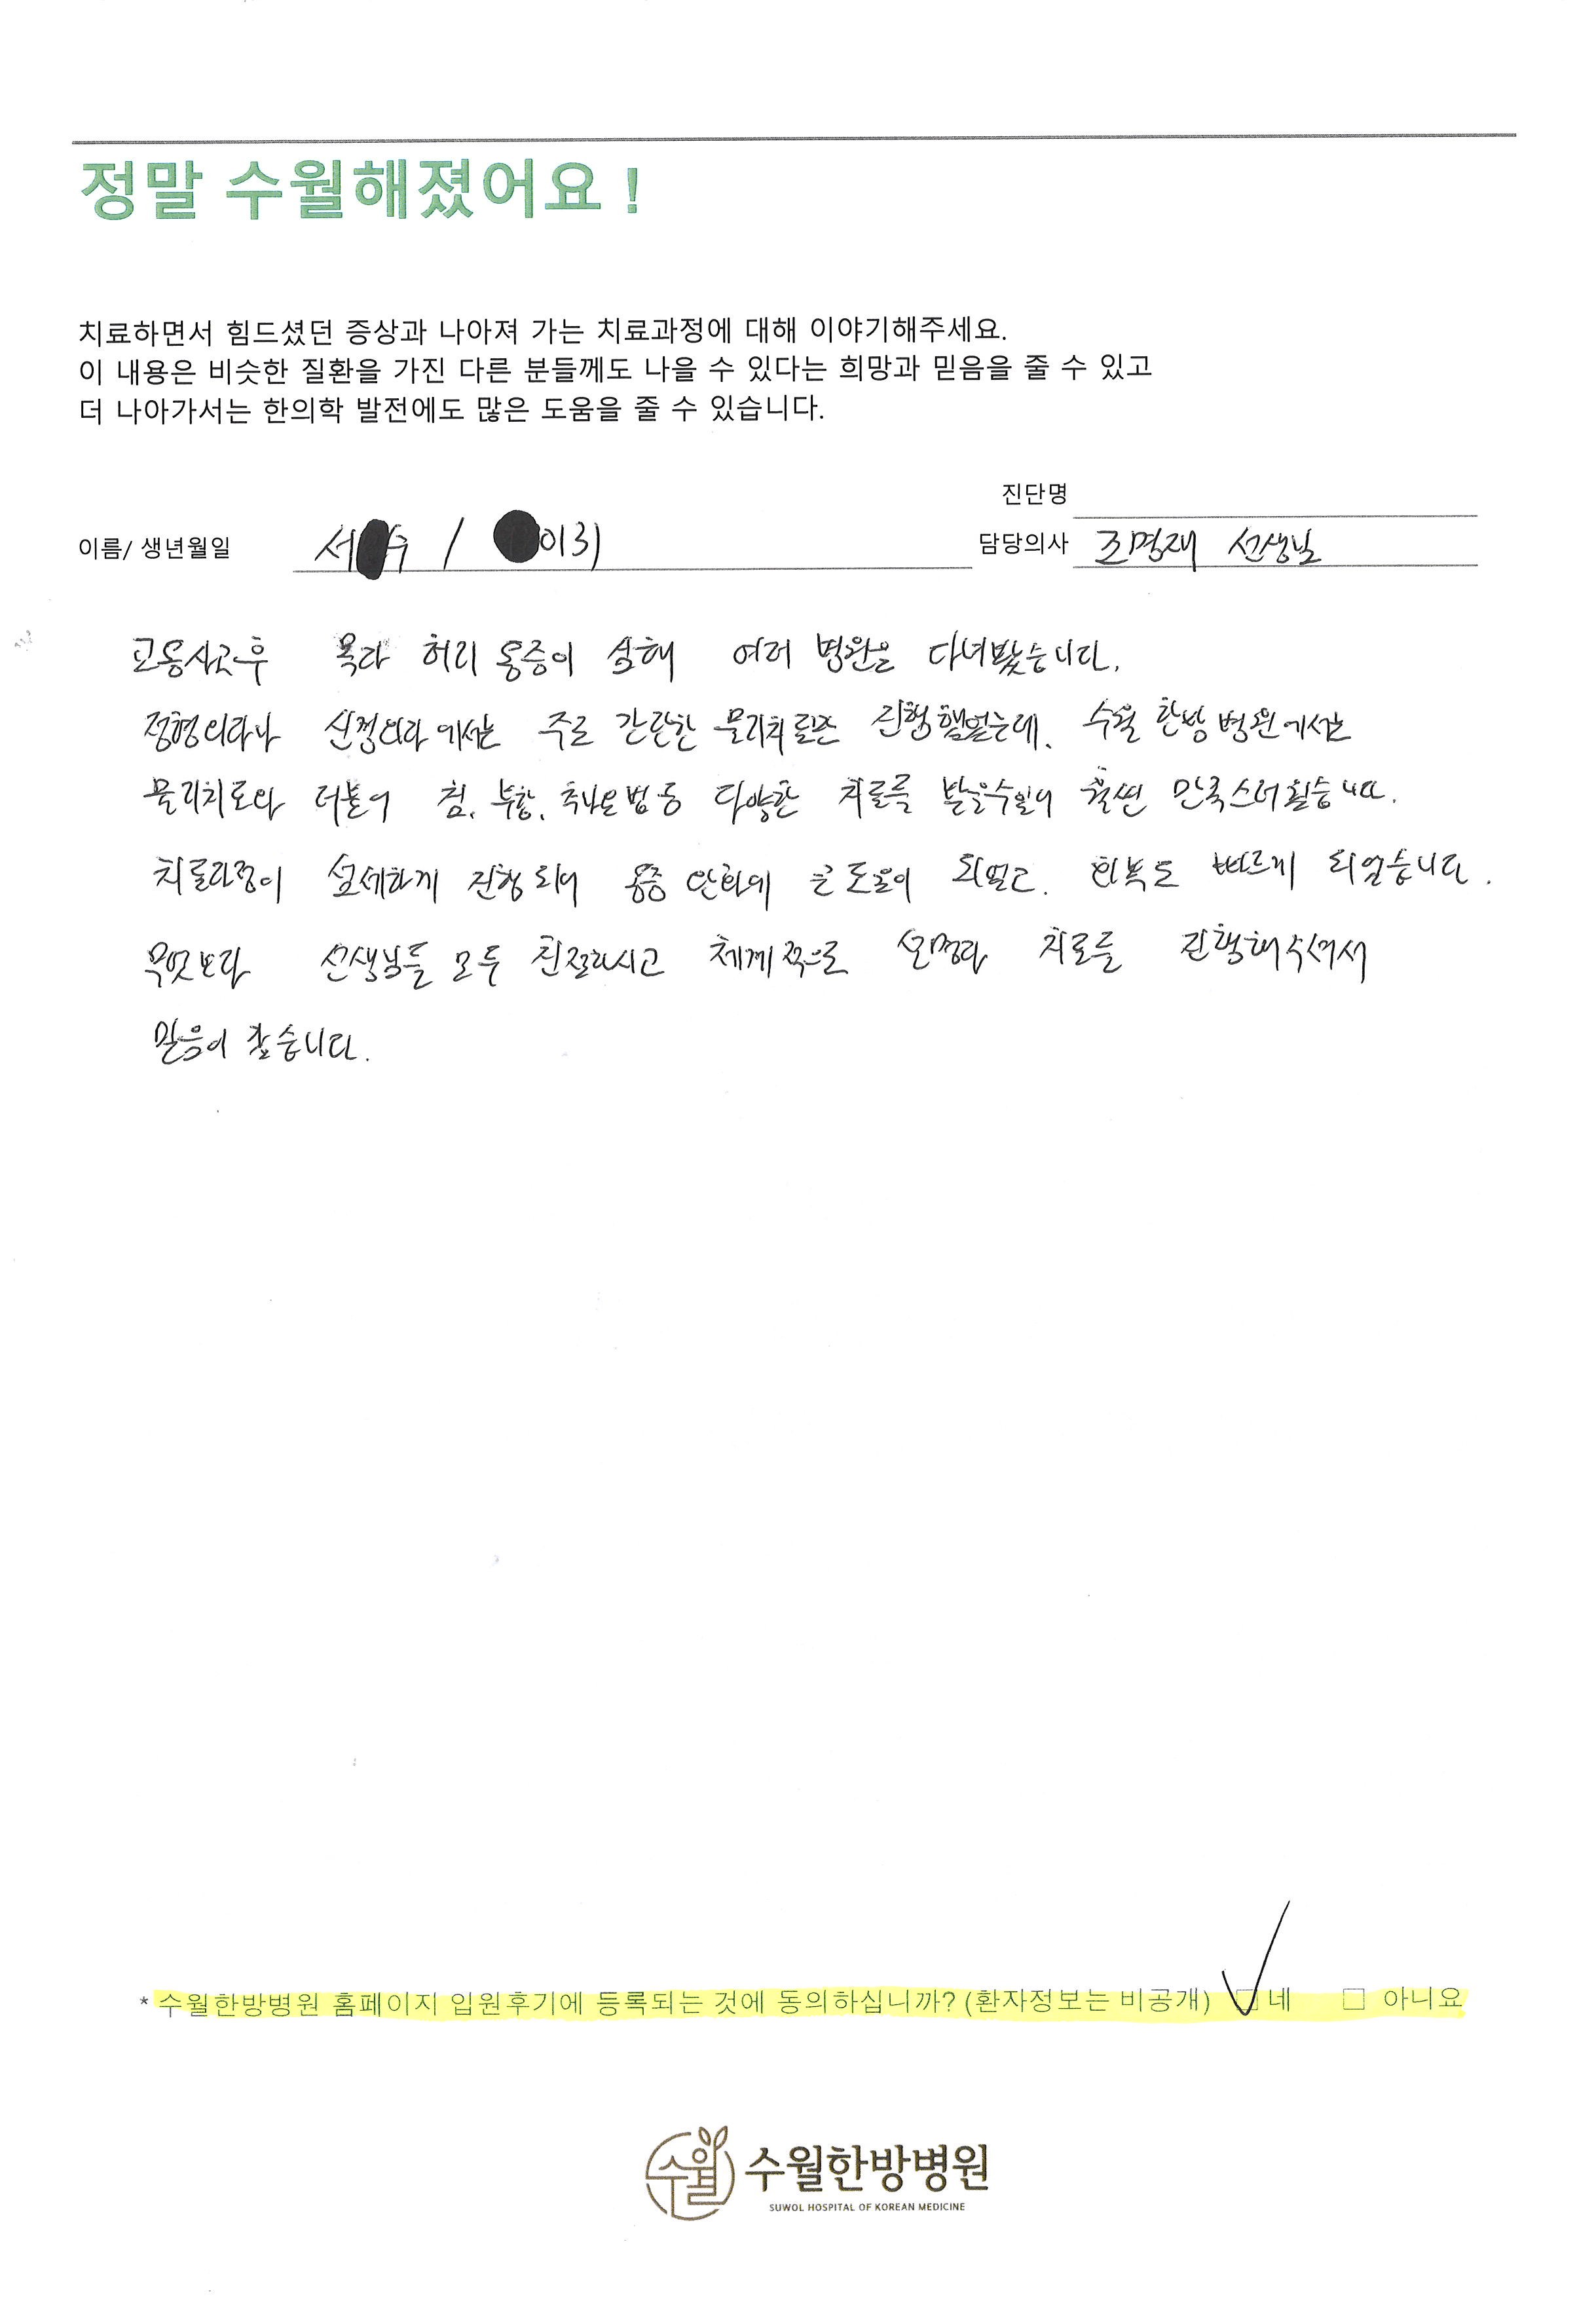 정말 수월해졌어요 !
치료하면서 힘드셨던 증상과 나아져 가는 치료과정에 대해 이야기해주세요.
이 내용은 비슷한 질환을 가진 다른 분들께도 나을 수 있다는 희망과 믿음을 줄 수 있고
더 나아가서는 한의학 발전에도 많은 도움을 줄 수 있습니다.
진단명
이름/ 생년월일 서 수 / 0131
담당의사 조명재 선생님
교통사고후 목과 허리 통증이 심해 여러 병원을 다녀봤습니다.
정형외과나 신경외과에서는 주로 간단한 물리치료만 진행했었는데, 수월한방병원에서는
물리치료와 더불어 침, 부항, 추나요법 등 다양한 치료를 받을수있어 훨씬 만족스러웠습니다.
치료과정이 섬세하게 진행되어 통증 완화에 큰 도움이 되었고, 회복도 빠르게 되었습니다.
무엇보다 선생님들 모두 친절하시고 체계적으로 설명과 치료를 진행해주셔서
믿음이 갔습니다.
* 수월한방병원 홈페이지 입원후기에 등록되는 것에 동의하십니까? (환자정보는 비공개) ☑ 네 □ 아니요
수월 수월한방병원
SUWOL HOSPITAL OF KOREAN MEDICINE